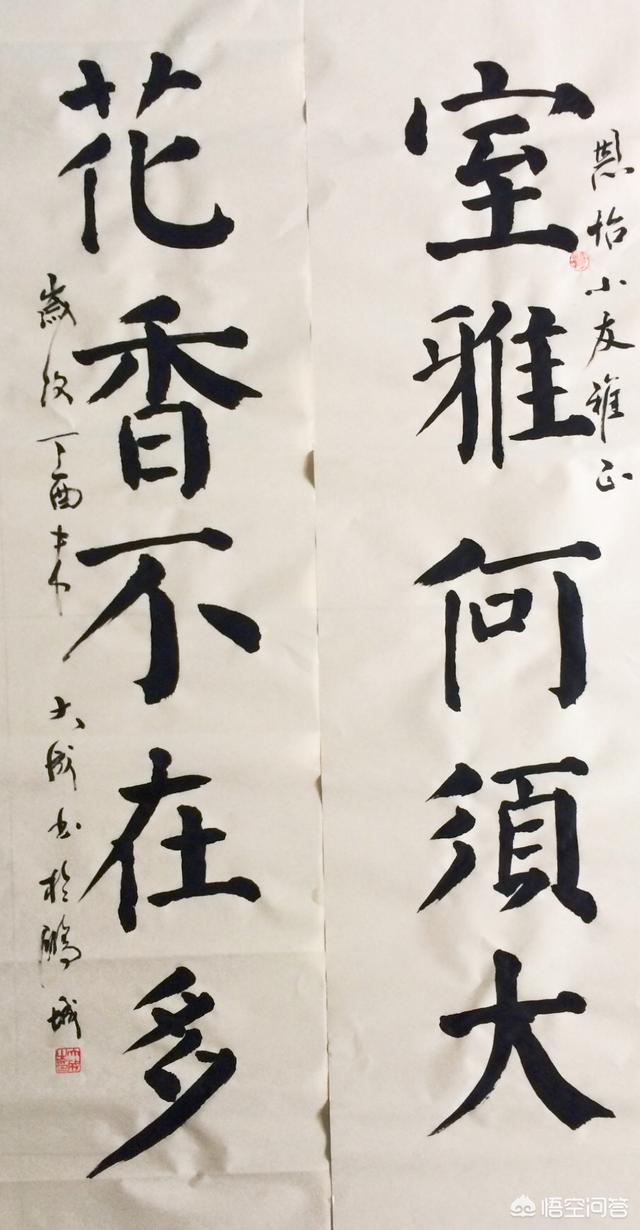 恩怡小友雅正
室雅何須大
花香不在多
歲次丁酉 大成书於鵬城
悟空问答